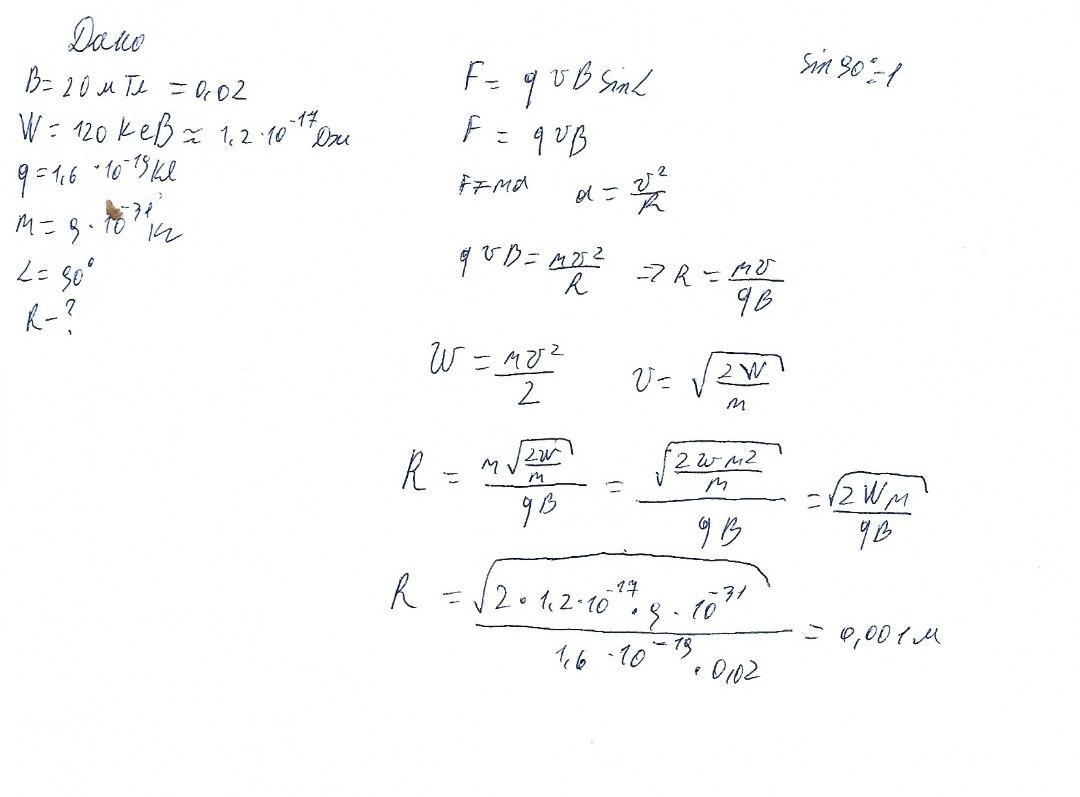 Дано
B = 20 мТл = 0,02
W = 120 КеВ ≈ 1,2 · 10⁻¹⁷ Дж
q = 1,6 · 10⁻¹⁹ Кл
m = 9 · 10⁻³¹ Кг
L = 90°
R - ?
F = q v B sin L
sin 90° = 1
F = q v B
F = ma a = v²/R
q v B = mv²/R => R = mv/qB
W = mv²/2 v = √(2W/m)
R = m√(2W/m)/qB = √(2Wm²/m)/qB = √(2Wm)/qB
R = √(2 · 1,2 · 10⁻¹⁷ · 9 · 10⁻³¹)/(1,6 · 10⁻¹⁹ · 0,02) = 0,001 м